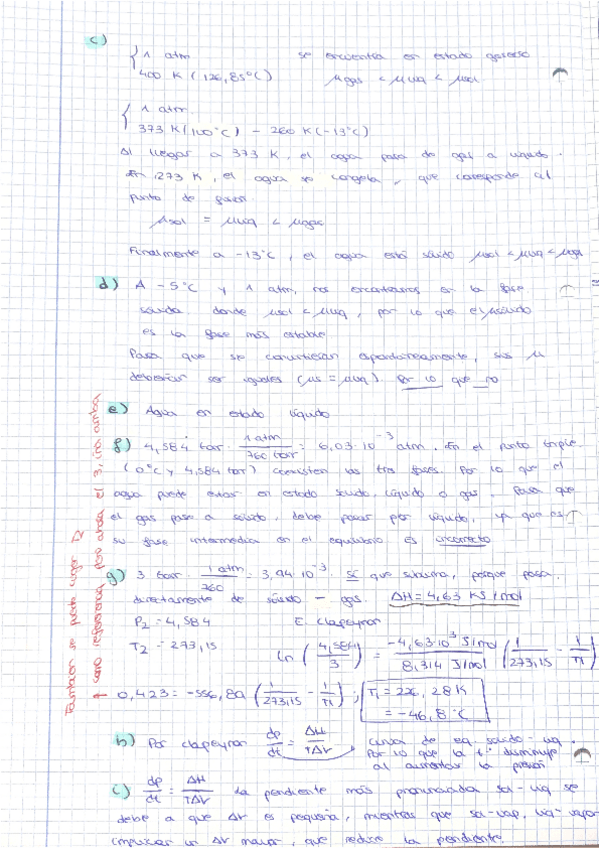 c)
{ 1 atm se encuentra en estado gaseoso
400 K (126,85°C) μgas < μliq < μsol
{ 1 atm
373 K (100°C) - 260 K (-13°C)
Al llegar a 373 K, el agua pasa de gas a líquido.
En 273 K, el agua se congela, que corresponde al
punto de
μsol = μliq < μgas
Finalmente a -13°C, el agua está sólido μsol < μliq < μgas
d) A -5°C y 1 atm, nos encontramos en la fase
sólida donde μsol < μliq, por lo que el μsólido
es la fase más estable
Para que se conviertan espontáneamente, sus μ
deberían ser iguales (μs = μliq). Por lo que no
e) Agua en estado líquido
f) 4,584 torr · 1 atm / 760 torr = 6,03·10⁻³ atm. En el punto triple
(0°C y 4,584 torr) coexisten las tres fases. Por lo que el
agua puede estar en estado sólido, líquido o gas. Para que
el gas pase a sólido, debe pasar por líquido, ya que es
su fase intermedia en el equilibrio es incorrecto
g) 3 torr · 1 atm / 760 = 3,94·10⁻³. Sí que sublima, porque pasa
directamente de sólido – gas. ΔH = 4,63 KJ/mol
P₂ = 4,584 E. Clapeyron
T₂ = 273,15 ln (4,584 / 3) = -4,63·10³ J/mol / 8,314 J/mol (1 / 273,15 - 1 / T₁)
0,423 = -556,89 (1 / 273,15 - 1 / T₁) ; T₁ = 226,28 K
= -46,8°C
h) Por clapeyron dp / dt = ΔH / TΔV curva de eq. sólido - liq.
Por lo que la t° disminuye
al aumentar la presión
i) dp / dt = ΔH / TΔV La pendiente más pronunciada sol - liq se
debe a que ΔV es pequeña, mientras que sol-vap, liq-vapor
implican un ΔV mayor, que reduce la pendiente.
También se puede coger T2
como referencia, pero ahora el 3, iría arriba